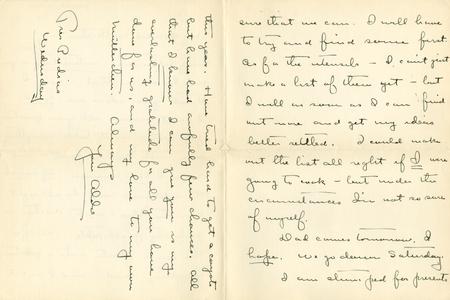 sure that we can. I will have
to try and find some first.
As for the utensils - I can't just
make a list of them yet - but
I will as soon as I can find
out more and get my ideas
better settled. I could make
out the list all right if I were
going to cook - but under the
circumstances I'm not so sure
of myself.
Dad comes tomorrow, I
hope. We go down Saturday.
I am stumped for presents
this year. Have tried hard to get a coyote
but have had awfully few chances. All
that I know I can give you is my
everlasting gratitude for all you have
done for us, and my love to my own
Always
Your
Wednesday